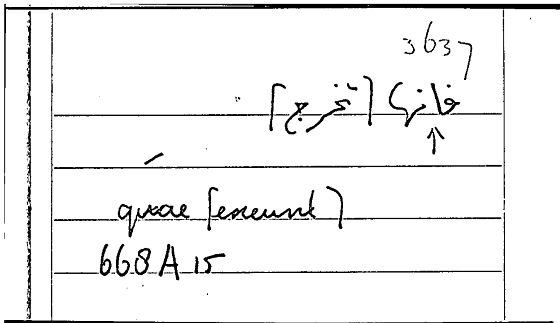 3637
فانها [تخرج]
↑
quae [exeunt]
668 A 15